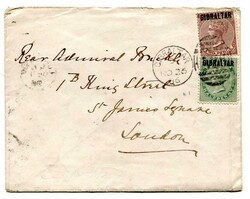 GIBRALTAR
GIBRALTAR
Rear Admiral
17 King Street
St James Square
London